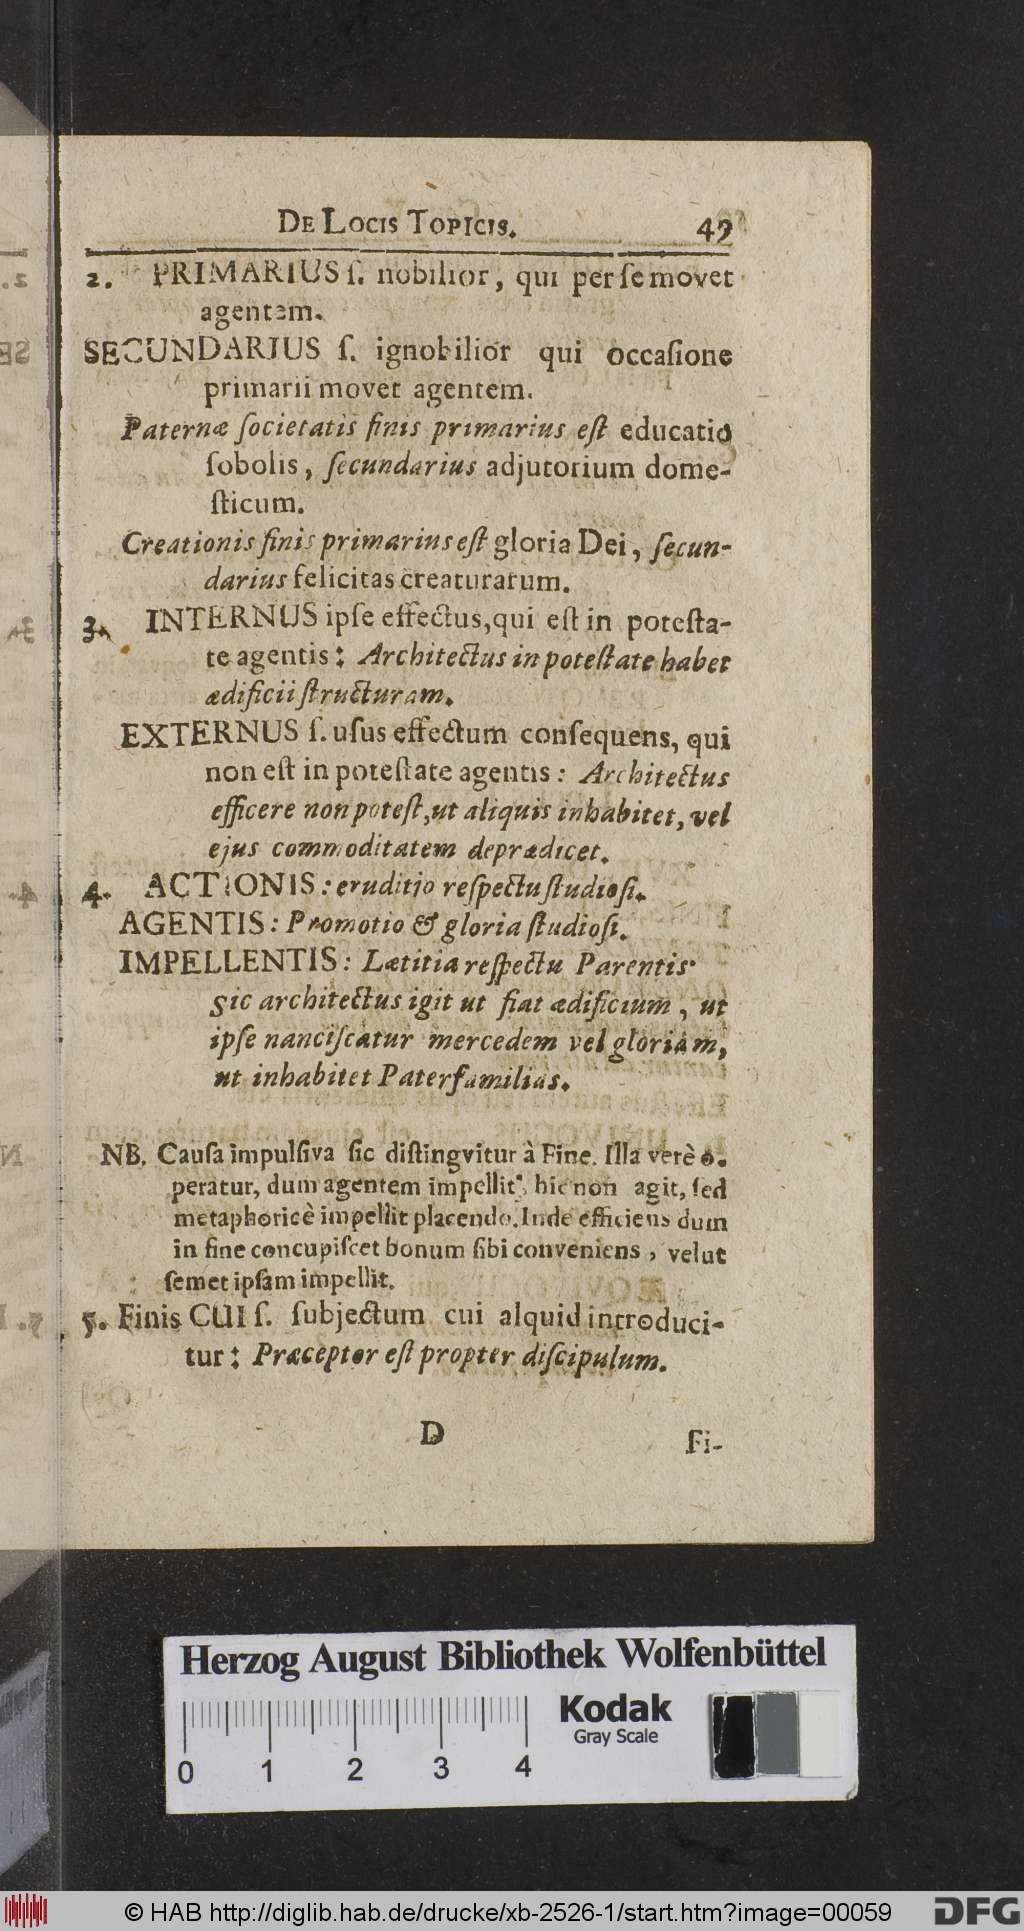 DE LOCIS TOPICIS. 49
2. PRIMARIUS ſ. nobilior, qui per ſe movet
agentem.
SECUNDARIUS ſ. ignobilior qui occaſione
primarii movet agentem.
Paternæ ſocietatis finis primarius eſt educatio
ſobolis, ſecundarius adjutorium dome-
ſticum.
Creationis finis primarius eſt gloria Dei, ſecun-
darius felicitas creaturarum.
3. INTERNUS ipſe effectus, qui eſt in poteſta-
te agentis: Architectus in poteſtate habet
ædificii ſtructuram.
EXTERNUS ſ. uſus effectum conſequens, qui
non eſt in poteſtate agentis: Architectus
efficere non poteſt, ut aliquis inhabitet, vel
ejus commoditatem deprædicet.
4. ACTIONIS: eruditio reſpectu ſtudioſi.
AGENTIS: Promotio & gloria ſtudioſi.
IMPELLENTIS: Lætitia reſpectu Parentis.
Sic architectus igit ut fiat ædificium, ut
ipſe nanciſcatur mercedem vel gloriam,
ut inhabitet Paterfamilias.
NB. Cauſa impulſiva ſic diſtingvitur à Fine. Illa verè o.
peratur, dum agentem impellit, hic non agit, ſed
metaphoricè impellit placendo. Inde efficiens dum
in fine concupiſcet bonum ſibi conveniens, velut
ſemet ipſam impellit.
5. Finis CUI ſ. ſubjectum cui alquid introduci-
tur: Præceptor eſt propter diſcipulum.
D Fi-
Herzog August Bibliothek Wolfenbüttel
Kodak
Gray Scale
0 1 2 3 4
© HAB http://diglib.hab.de/drucke/xb-2526-1/start.htm?image=00059
DFG